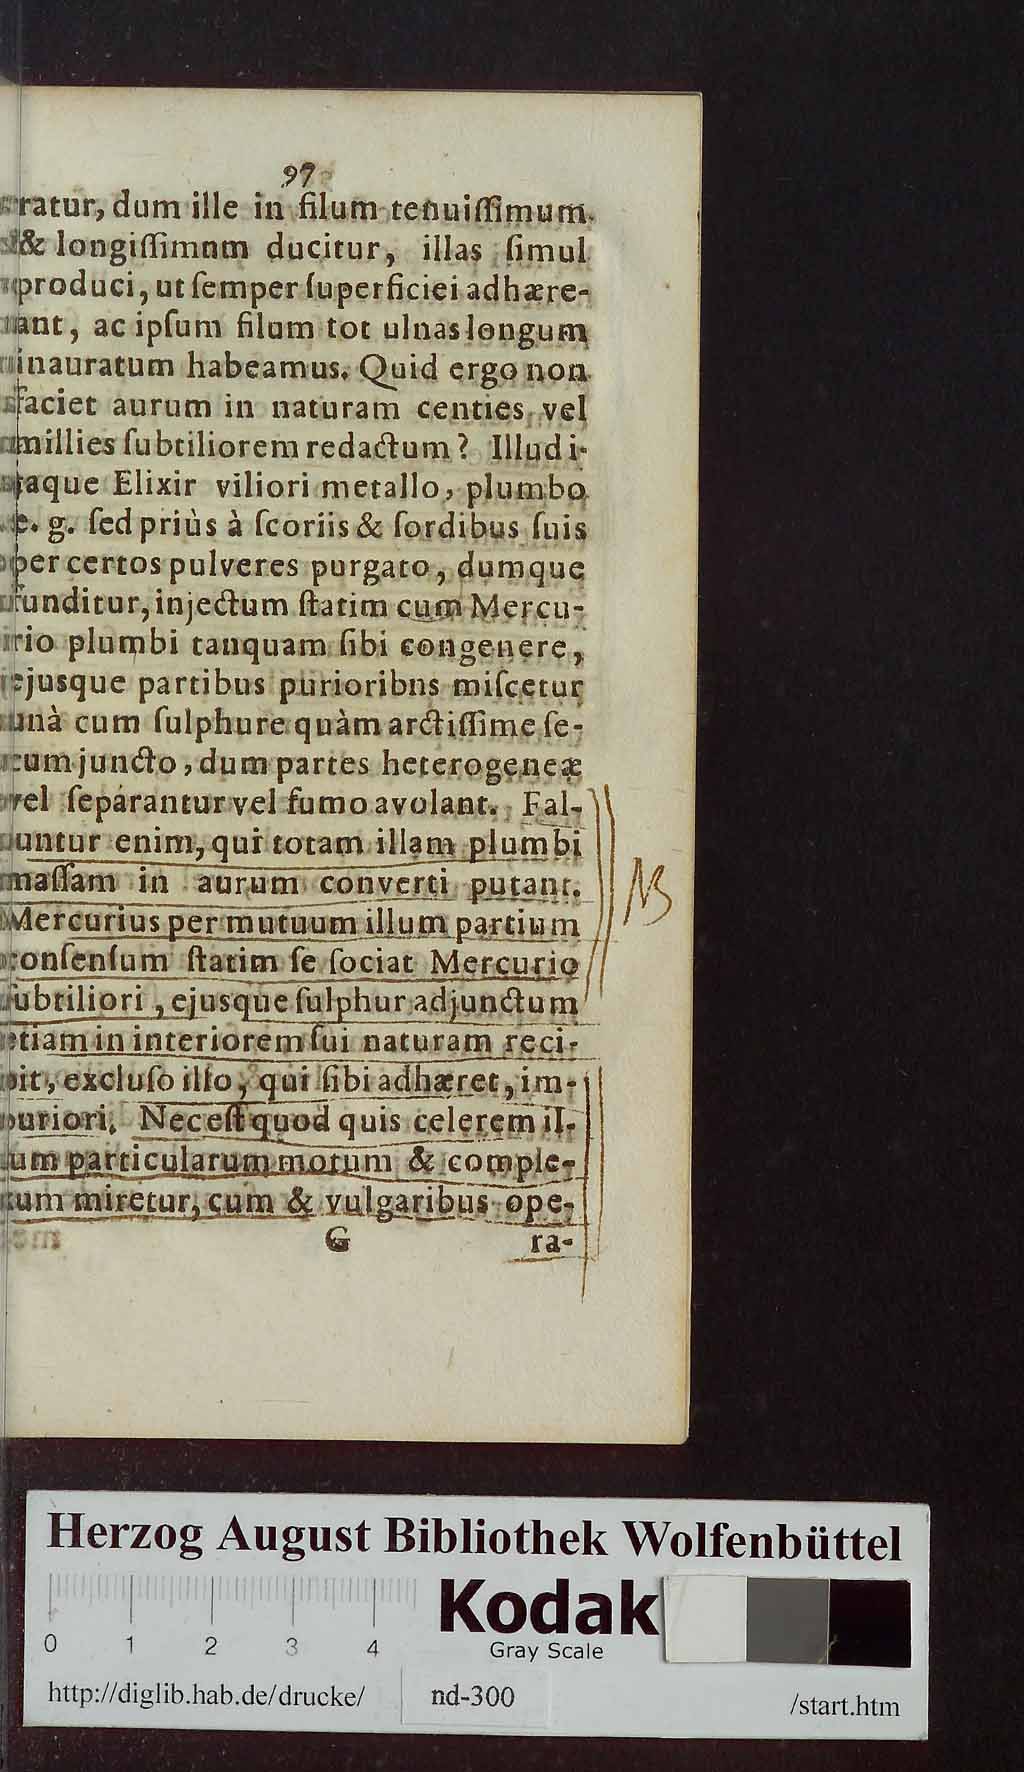 97
ratur, dum ille in filum tenuiſſimum
& longiſſimum ducitur, illas ſimul
produci, ut ſemper ſuperficiei adhære-
ant, ac ipſum filum tot ulnas longum
inauratum habeamus. Quid ergo non
faciet aurum in naturam centies vel
millies ſubtiliorem redactum? Illud i-
taque Elixir viliori metallo, plumbo
e. g. ſed priùs à ſcoriis & ſordibus ſuis
per certos pulveres purgato, dumque
funditur, injectum ſtatim cum Mercu-
rio plumbi tanquam ſibi congenere,
ejusque partibus purioribns miſcetur
unà cum ſulphure quàm arctiſſime ſe-
cum juncto, dum partes heterogeneæ
vel ſeparantur vel fumo avolant. Fal-
untur enim, qui totam illam plumbi
maſſam in aurum converti putant.
Mercurius per mutuum illum partium
conſenſum ſtatim ſe ſociat Mercurio
ſubtiliori, ejusque ſulphur adjunctum
etiam in interiorem ſui naturam reci-
pit, excluſo illo, qui ſibi adhæret, im-
puriori. Nec eſt quod quis celerem il-
lum particularum motum & comple-
tum miretur, cum & vulgaribus ope-
G ra-
NB
Herzog August Bibliothek Wolfenbüttel
0 1 2 3 4
Kodak
Gray Scale
http://diglib.hab.de/drucke/ nd-300 /start.htm